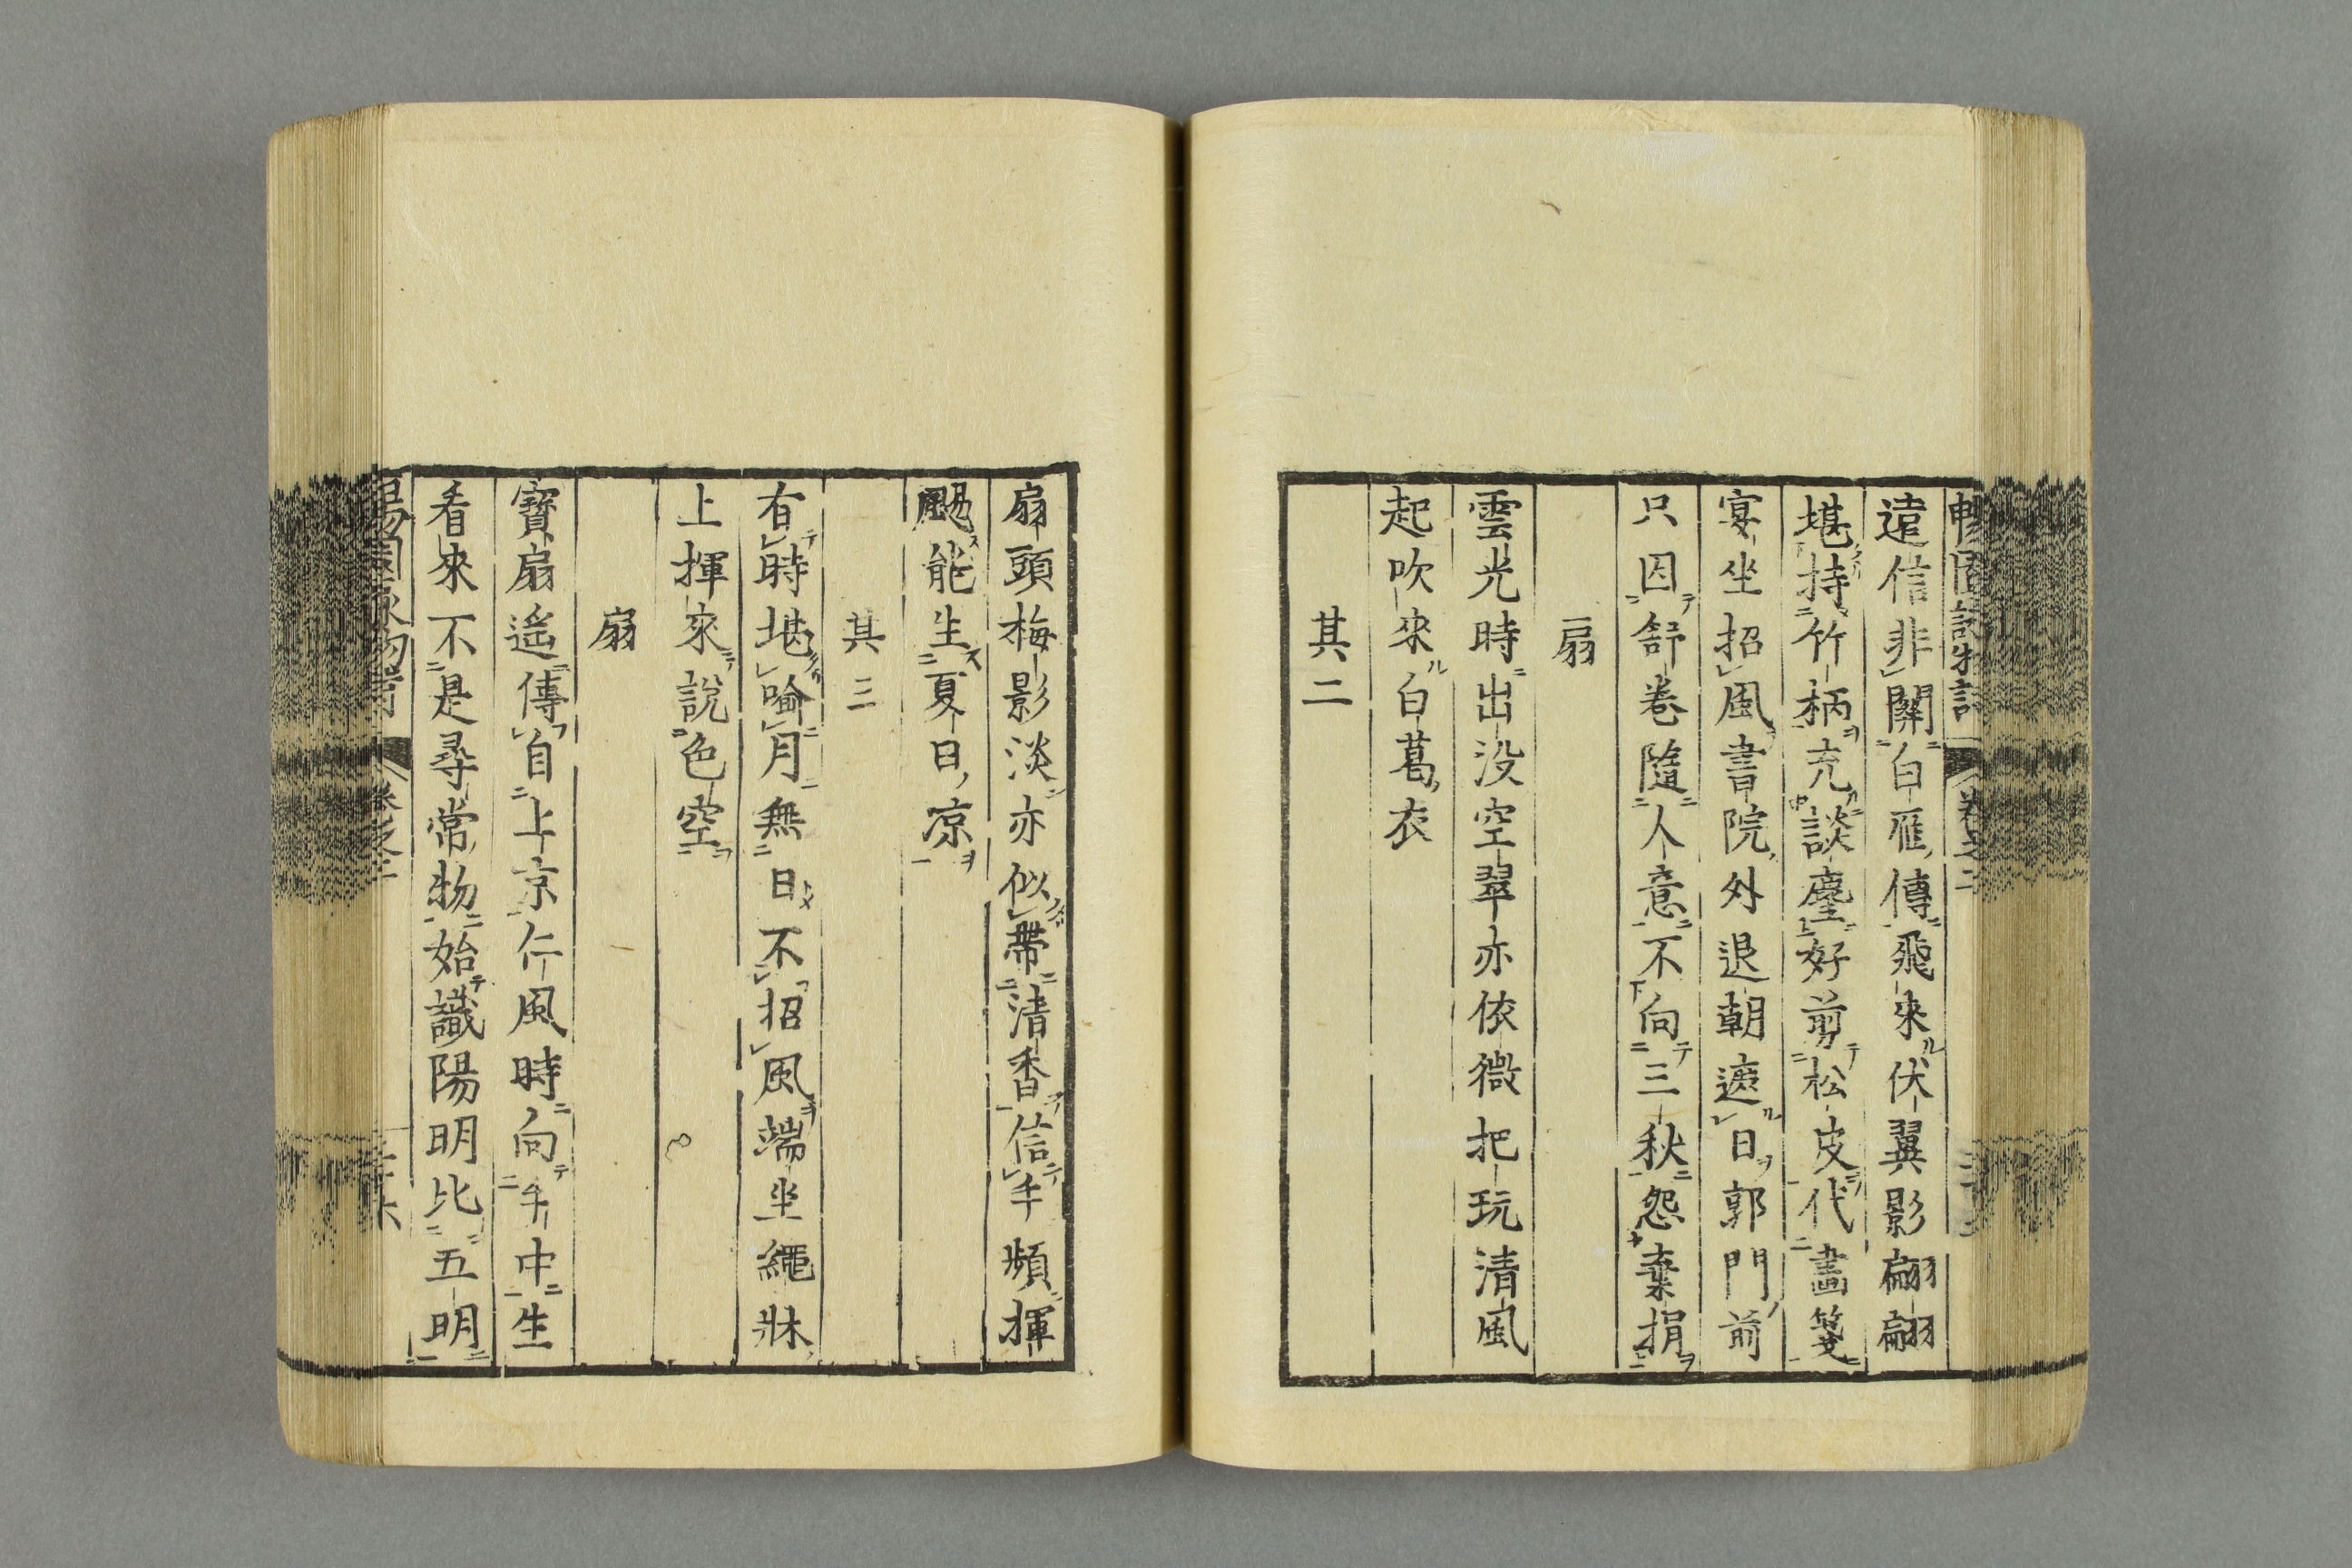 遠信非關白雁傳飛來伏翼影翩翩
堪持竹柄充談麈好剪松皮代畫箑
宴坐招風書院外退朝遮日郭門前
只因舒卷隨人意不向三秋怨棄捐
扇
雲光時出没空翠亦依微把玩清風
起吹來白葛衣
其二
扇頭梅影淡亦似帶清香信手頻揮
颺能生夏日凉
其三
有時堪喻月無日不招風端坐繩牀
上揮來說色空
扇
寶扇遙傳自上京仁風時向手中生
看來不是尋常物始識陽明比五明